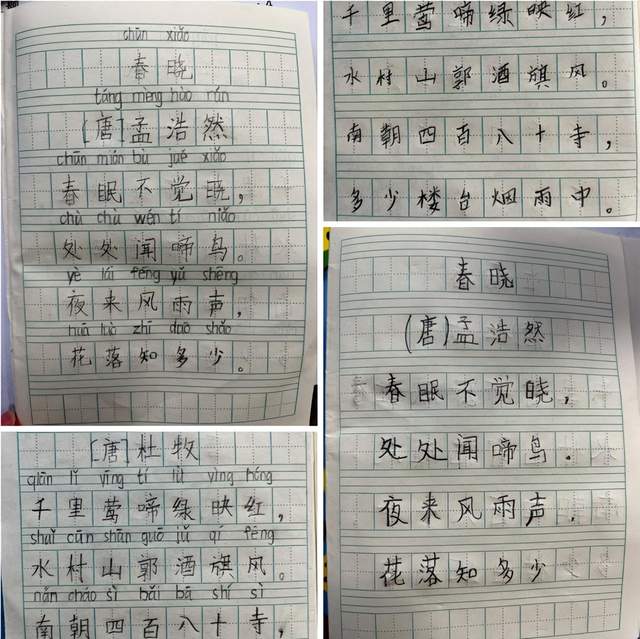 chūn xiǎo
春晓
táng mèng hào rán
[唐]孟浩然
chūn mián bù jué xiǎo
春眠不觉晓，
chù chù wén tí niǎo
处处闻啼鸟。
yè lái fēng yǔ shēng
夜来风雨声，
huā luò zhī duō shǎo
花落知多少。
千里莺啼绿映红，
水村山郭酒旗风。
南朝四百八十寺，
多少楼台烟雨中。
[唐]杜牧
qiān lǐ yīng tí lǜ yìng hóng
千里莺啼绿映红，
shuǐ cūn shān guō jiǔ qí fēng
水村山郭酒旗风。
nán cháo sì bǎi bā shí sì
南朝四百八十寺，
春晓
(唐)孟浩然
春眠不觉晓，
处处闻啼鸟.
夜来风雨声.
花落知多少